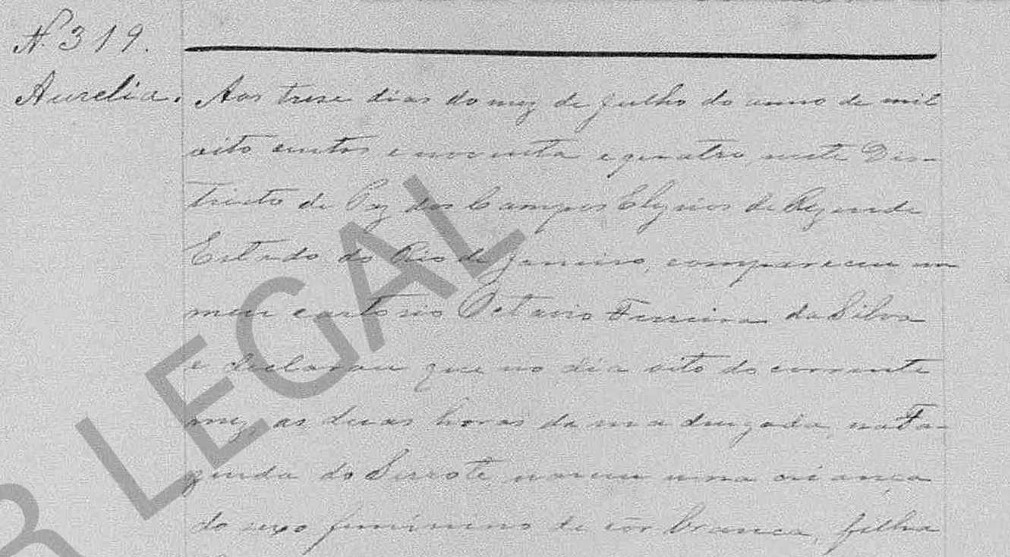 Nº 319.
Aurelia. Aos trese dias do mez de Julho do anno de mil
oito centos e noventa e quatro, neste Dis-
tricto de Paz dos Campos Elyseos de Rezende
Estado do Rio de Janeiro, compareceu em
meu cartorio Octavio Ferreira da Silva
e declarou que no dia oito do corrente
mez, as duas horas da madrugada, na Fa-
zenda do Serrote, nasceu uma criança
do sexo feminino de côr branca, filha
R LEGAL